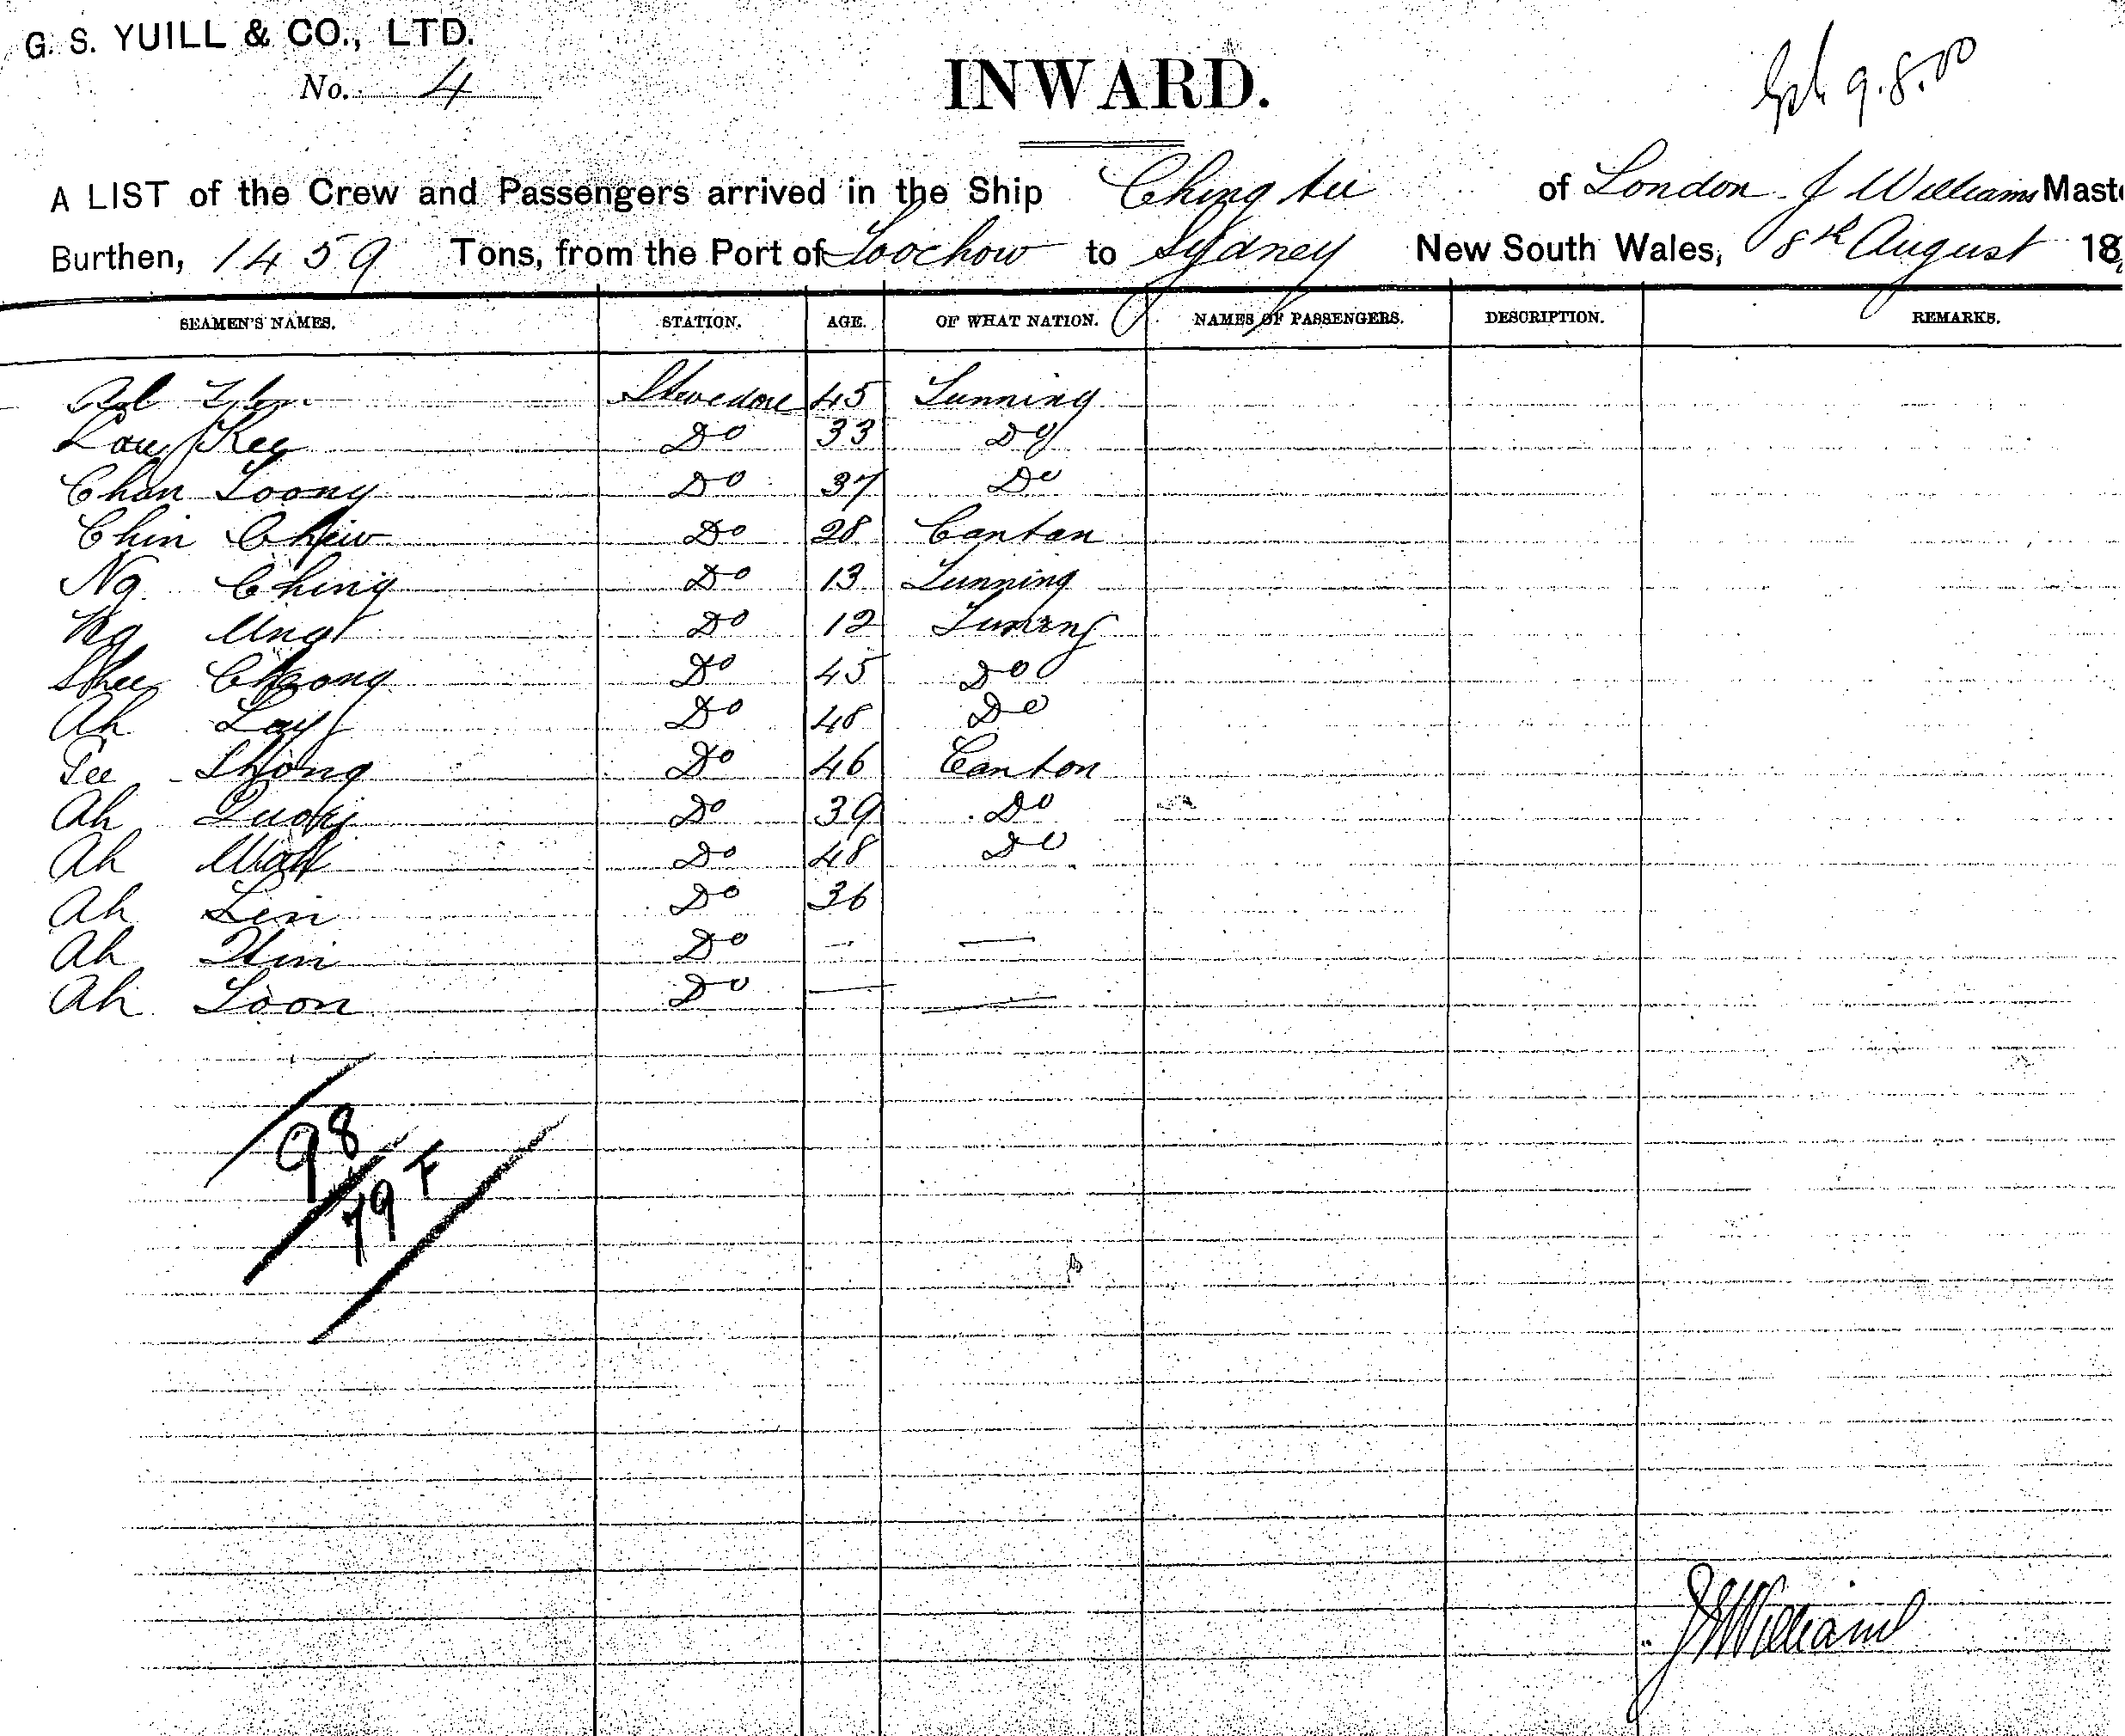 G. S. YUILL & CO., LTD.
No. 4
INWARD.
9.8.00
A LIST of the Crew and Passengers arrived in the Ship Ching tu of London J Williams Maste
Burthen, 1459 Tons, from the Port of Foochow to Sydney New South Wales, 8th August 18
SEAMEN'S NAMES. STATION. AGE. OF WHAT NATION. NAMES OF PASSENGERS. DESCRIPTION. REMARKS.
Stevedore 45 Sunning
Kee Do 33 Do
Chan Loong Do 37 Do
Chin Chew Do 28 Canton
Ng Ching Do 13 Sunning
Ng Do 12 Sunning
Shee Cheong Do 45 Do
Ah Lay Do 48 Do
Tee Shong Do 46 Canton
Ah Do 39 Do
Ah Do 48 Do
Ah Lin Do 36
Ah Do — —
Ah Loon Do — —
98
79 F
J Williams